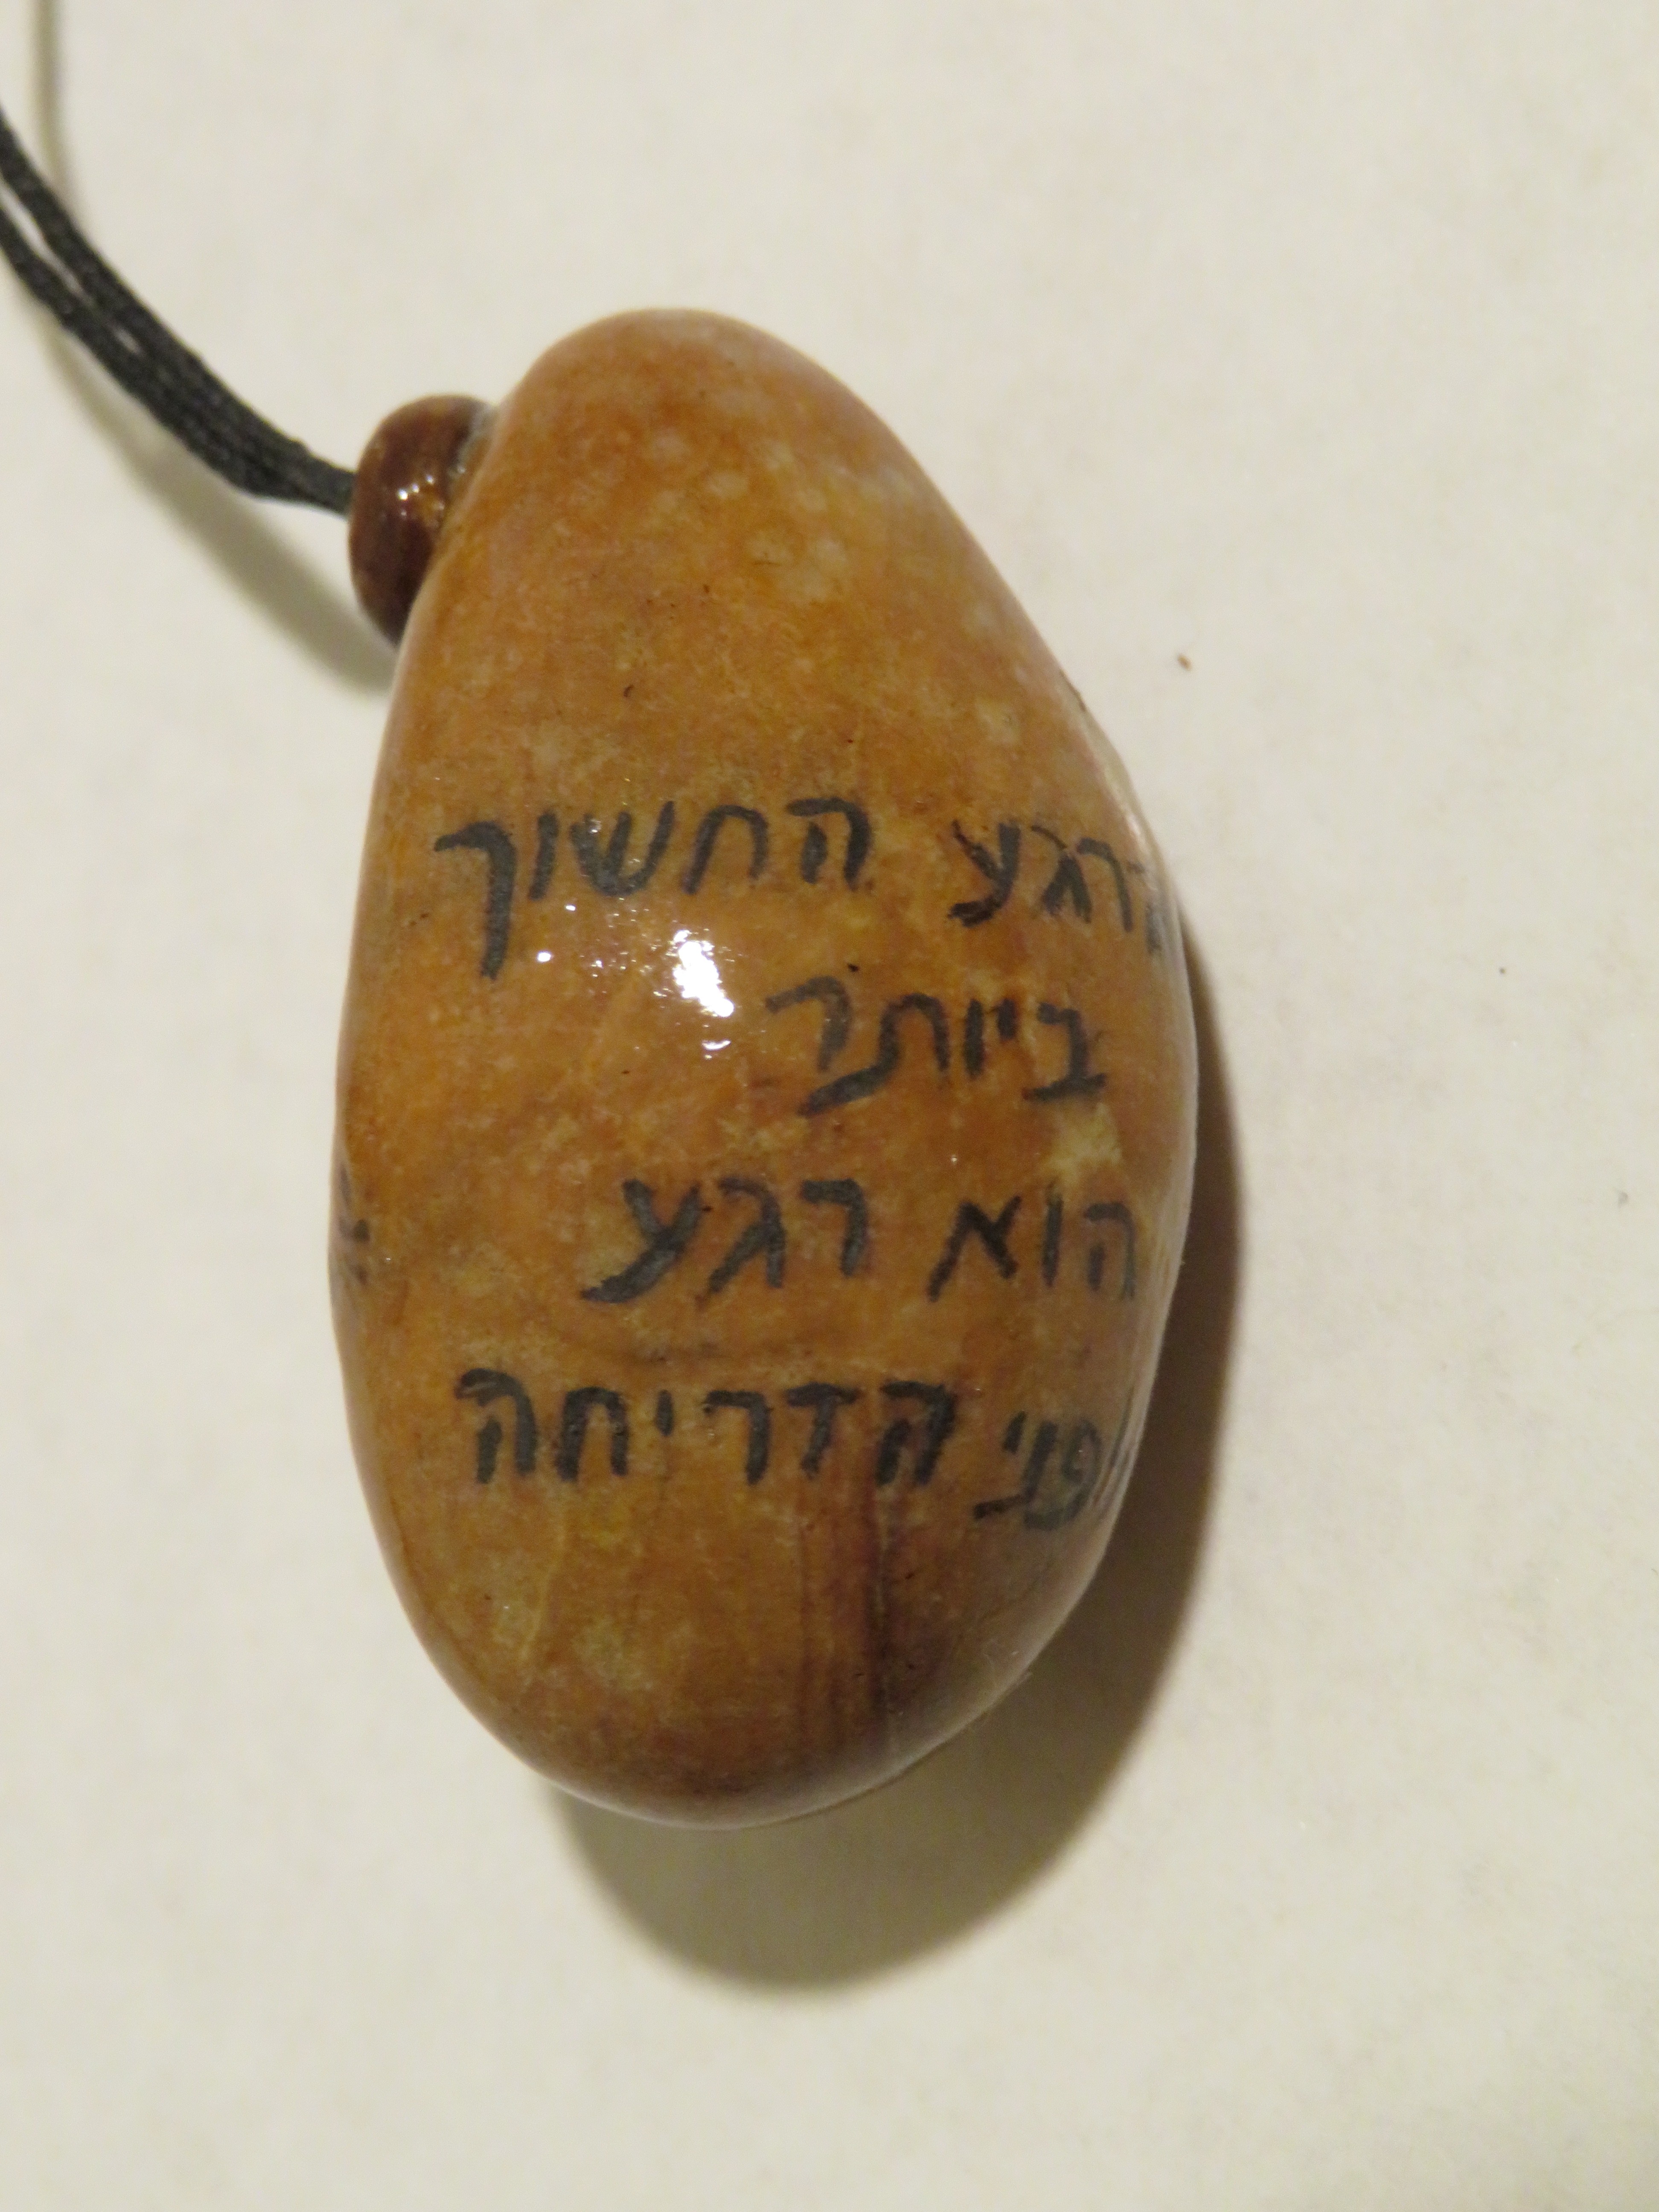 הרגע החשוך
ביותר
הוא רגע
לפני הדריחה